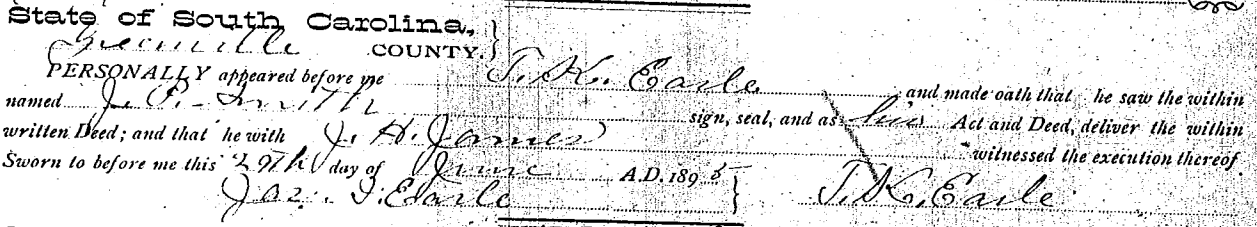 State of South Carolina,
Greenville COUNTY.
PERSONALLY appeared before me T. K. Earle and made oath that he saw the within
named J. P. Smith sign, seal, and as his Act and Deed, deliver the within
written Deed; and that he with J. H. James witnessed the execution thereof.
Sworn to before me this 29th day of June A.D. 1895
Jas. T. Earle T. K. Earle